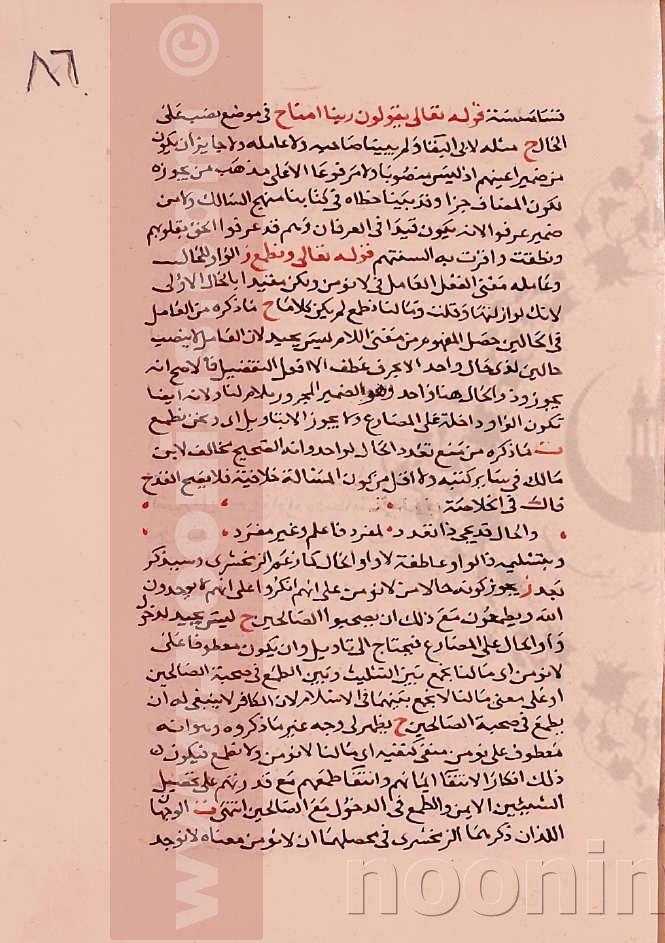 ٨٦
قوله تعالى يقولون ربنا امنا ح في موضع نصب على
الحال ح مثله لابي البقا ولم يبينا صاحبه ولا عامله ولا جايز ان يكون
من ضمير اعينهم اذ ليس منصوبا ولا مرفوعا الا على مذهب من يجوزه
لكون المضاف جزا وقد بينا خطاه في كتابنا منهج السالك ولا من
ضمير عرفوا لانه يكون قيدا في العرفان وهم قد عرفوا الحق بقلوبهم
ونطقت واقرت به السنتهم قوله تعالى ونطمع ز الواو للحال
وعامله معنى الفعل العامل في لا نومن ولكن مقيدا بالحال الاولى
لانك لو ازلتها وقلت ومالنا ونطمع لم يكن كلاما ح ما ذكره من العامل
في الحالين حصل المفهوم من معنى اللام ليس بجيد لان العامل لا ينصب
حالين لذي حال واحد الا بحرف عطف الا افعل التفضيل فالاصح انه
يجوز وذو الحال هنا واحد وهو الضمير المجرور بلام لنا ولانه ايضا
تكون الواو داخلة على المضارع ولا يجوز الا بتاويل اي ونحن نطمع
ت ما ذكره من منع تعدد الحال لواحد وانه الصحيح مخالف لابن
مالك في ساير كتبه ولا اقل من كون المسالة خلافية فلا يصح القدح
قال في الخلاصة
والحال قد يجي ذا تعدد لمفرد فاعلم وغير مفرد
وبتسليمه فالواو عاطفة لا واو الحال كما زعم الزمخشري وسيذكر
بعد ز يجوز كونه حالا من لا نومن على انهم انكروا على انهم لا يوحدون
الله ويطمعون مع ذلك ان يصحبوا الصالحين ح ليس بجيد لدخول
واو الحال على المضارع فيحتاج الى تاويل وان يكون معطوفا على
لا نومن اي مالنا نجمع بين التثليث وبين الطمع في صحبة الصالحين
او على معنى مالنا لا نجمع بينهما في الاسلام لان الكافر لا ينبغي له ان
يطمع في صحبة الصالحين ح يظهر لي وجه غير ما ذكروه وهو انه
معطوف على نومن منفي كنفيه اي مالنا لا نومن ولا نطمع فيكون في
ذلك انكار الانتفا ايمانهم وانتفا طمعهم مع قدرتهم على تحصيل
الشيئين الايمن والطمع في الدخول مع الصالحين انتهى ت الوجهان
اللذان ذكرهما الزمخشري في محصلهما ان لا نومن معناه لا نوجد
noonin